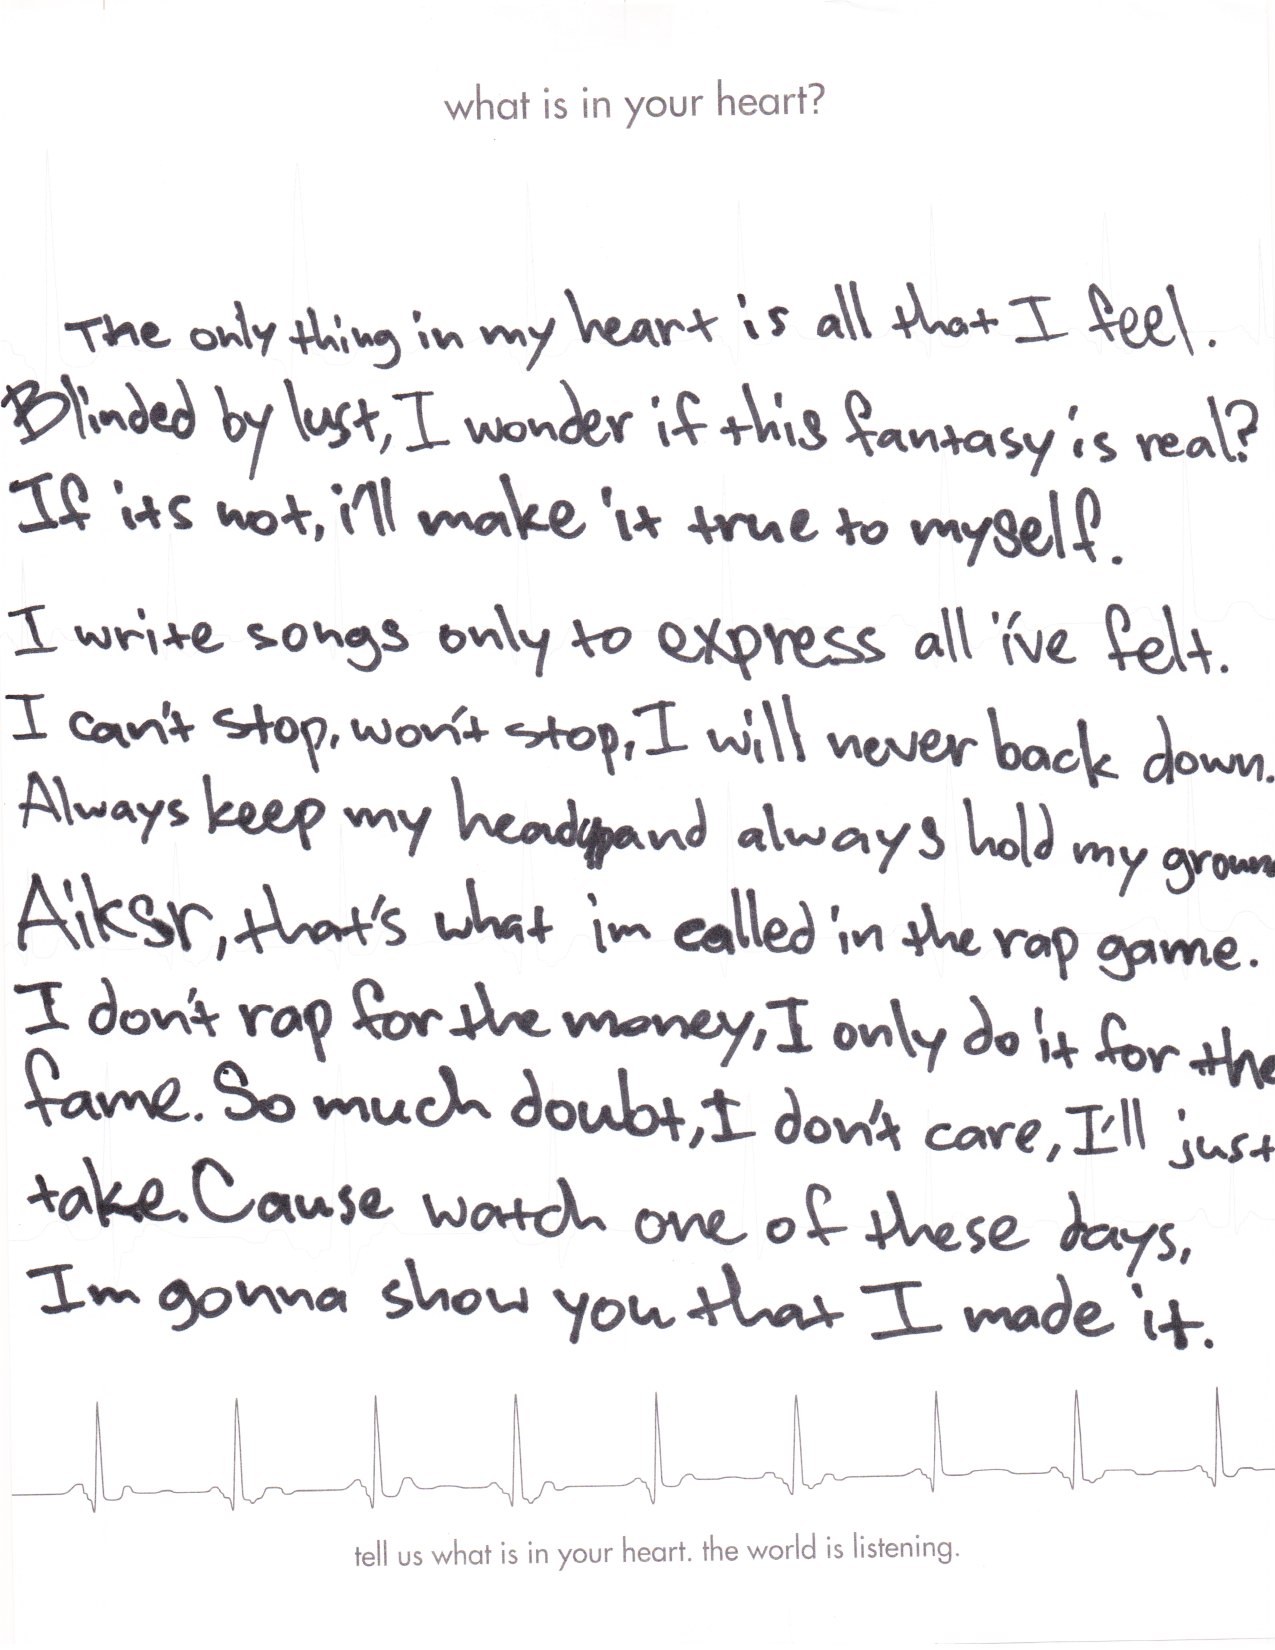 what is in your heart?
The only thing in my heart is all that I feel.
Blinded by lust, I wonder if this fantasy is real?
If its not, i'll make it true to myself.
I write songs only to express all i've felt.
I can't stop, won't stop, I will never back down.
Always keep my head up and always hold my groun
Aiksr, that's what im called in the rap game.
I don't rap for the money, I only do it for the
fame. So much doubt, I don't care, I'll just
take. Cause watch one of these days,
Im gonna show you that I made it.
tell us what is in your heart. the world is listening.